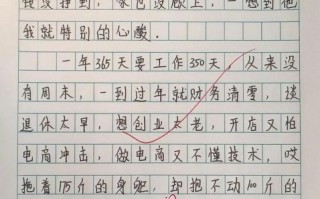 我没挣到，家也没顾上，一想到他
我就特别的心酸．
一年365天要工作350天，从来没
有周末，一到过年就财务清零，谈
退休太早，想创业太老，开店又怕
电商冲击，做电商又不懂技术，哎
拖着175斤的身躯，却抱不动100斤的